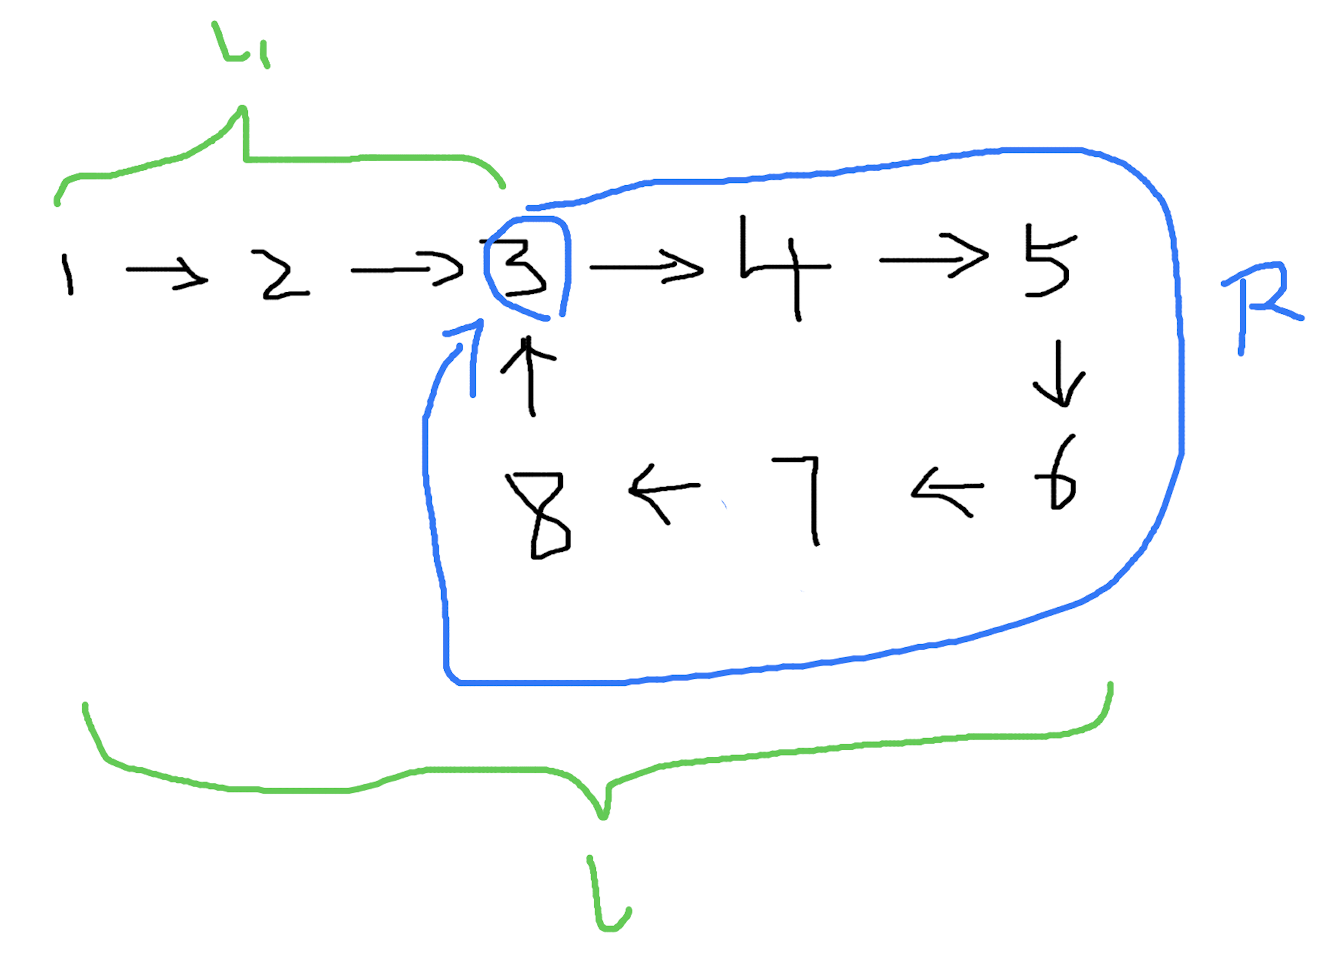 L1
1 → 2 → 3 → 4 → 5
R
↑ ↓
8 ← 7 ← 6
L